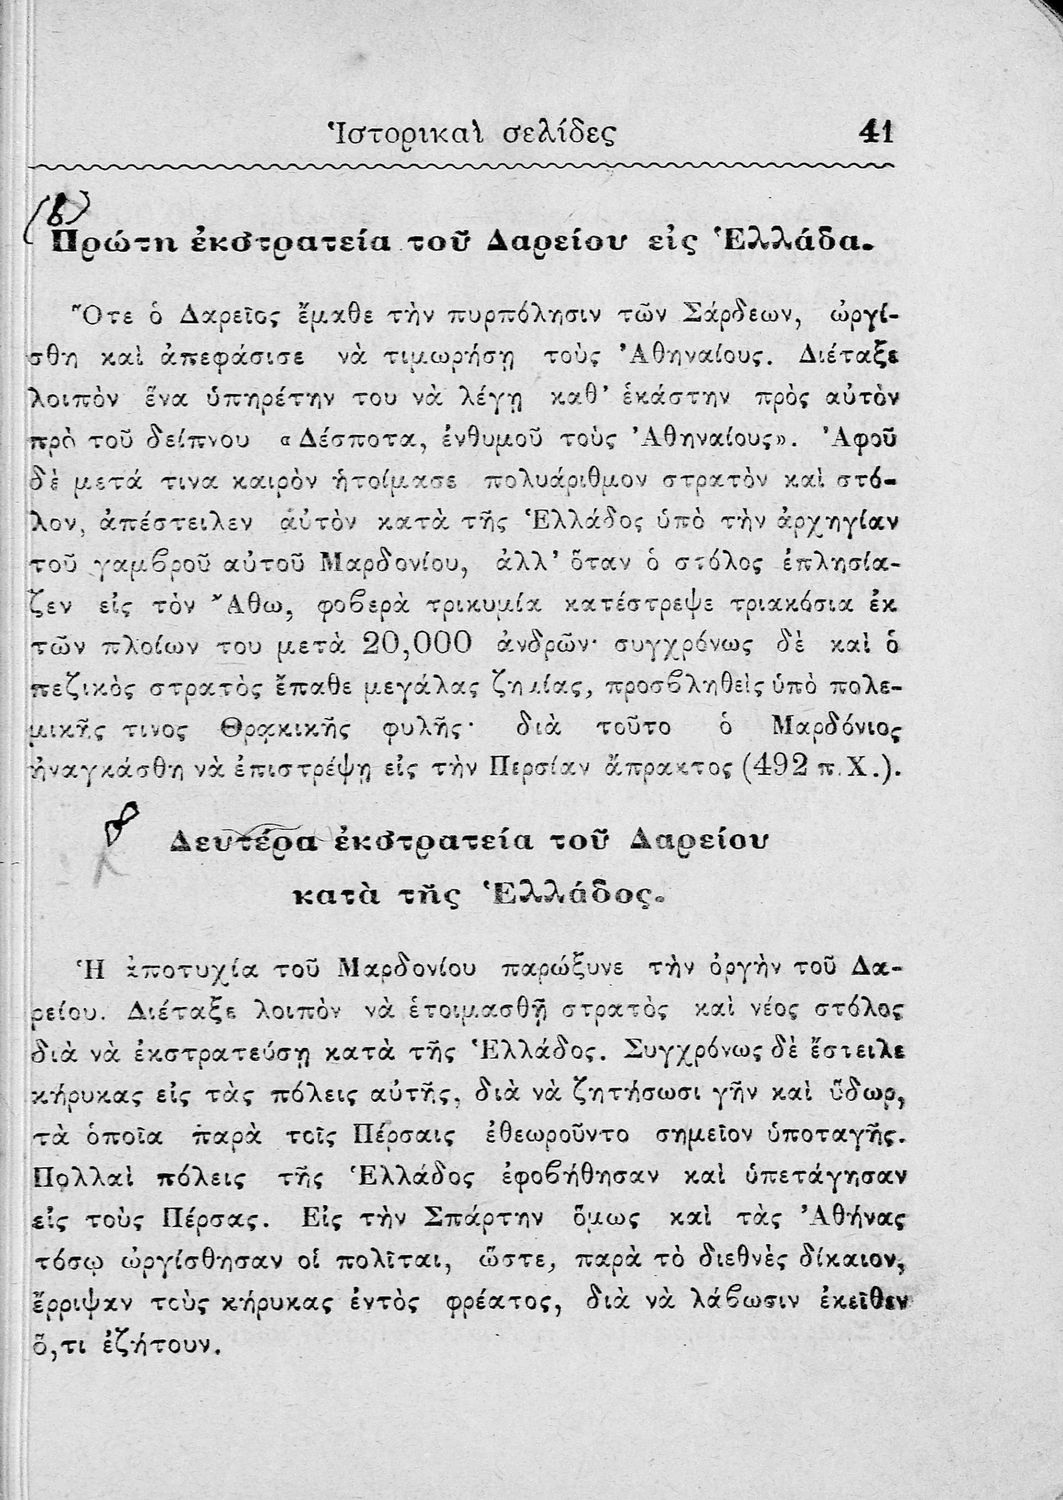 Ἱστορικαὶ σελίδες 41
(β)
Πρώτη ἐκστρατεία τοῦ Δαρείου εἰς Ἑλλάδα.
Ὅτε ὁ Δαρεῖος ἔμαθε τὴν πυρπόλησιν τῶν Σάρδεων, ὠργί-
σθη καὶ ἀπεφάσισε νὰ τιμωρήσῃ τοὺς Ἀθηναίους. Διέταξε
λοιπὸν ἕνα ὑπηρέτην του νὰ λέγῃ καθ’ ἑκάστην πρὸς αὐτὸν
πρὸ τοῦ δείπνου «Δέσποτα, ἐνθυμοῦ τοὺς Ἀθηναίους». Ἀφοῦ
δὲ μετά τινα καιρὸν ἡτοίμασε πολυάριθμον στρατὸν καὶ στό-
λον, ἀπέστειλεν αὐτὸν κατὰ τῆς Ἑλλάδος ὑπὸ τὴν ἀρχηγίαν
τοῦ γαμϐροῦ αὐτοῦ Μαρδονίου, ἀλλ’ ὅταν ὁ στόλος ἐπλησία-
ζεν εἰς τὸν Ἄθω, φοϐερὰ τρικυμία κατέστρεψε τριακόσια ἐκ
τῶν πλοίων του μετὰ 20,000 ἀνδρῶν· συγχρόνως δὲ καὶ ὁ
πεζικὸς στρατὸς ἔπαθε μεγάλας ζημίας, προσϐληθεὶς ὑπὸ πολε-
μικῆς τινος Θρᾳκικῆς φυλῆς· διὰ τοῦτο ὁ Μαρδόνιος
ἠναγκάσθη νὰ ἐπιστρέψῃ εἰς τὴν Περσίαν ἄπρακτος (492 π.Χ.).
Δευτέρα ἐκστρατεία τοῦ Δαρείου
κατὰ τῆς Ἑλλάδος.
Ἡ ἀποτυχία τοῦ Μαρδονίου παρώξυνε τὴν ὀργὴν τοῦ Δα-
ρείου. Διέταξε λοιπὸν νὰ ἑτοιμασθῇ στρατὸς καὶ νέος στόλος
διὰ νὰ ἐκστρατεύσῃ κατὰ τῆς Ἑλλάδος. Συγχρόνως δὲ ἔστειλε
κήρυκας εἰς τὰς πόλεις αὐτῆς, διὰ νὰ ζητήσωσι γῆν καὶ ὕδωρ,
τὰ ὁποῖα παρὰ τοῖς Πέρσαις ἐθεωροῦντο σημεῖον ὑποταγῆς.
Πολλαὶ πόλεις τῆς Ἑλλάδος ἐφοϐήθησαν καὶ ὑπετάγησαν
εἰς τοὺς Πέρσας. Εἰς τὴν Σπάρτην ὅμως καὶ τὰς Ἀθήνας
τόσῳ ὠργίσθησαν οἱ πολῖται, ὥστε, παρὰ τὸ διεθνὲς δίκαιον,
ἔρριψαν τοὺς κήρυκας ἐντὸς φρέατος, διὰ νὰ λάϐωσιν ἐκεῖθεν
ὅ,τι ἐζήτουν.